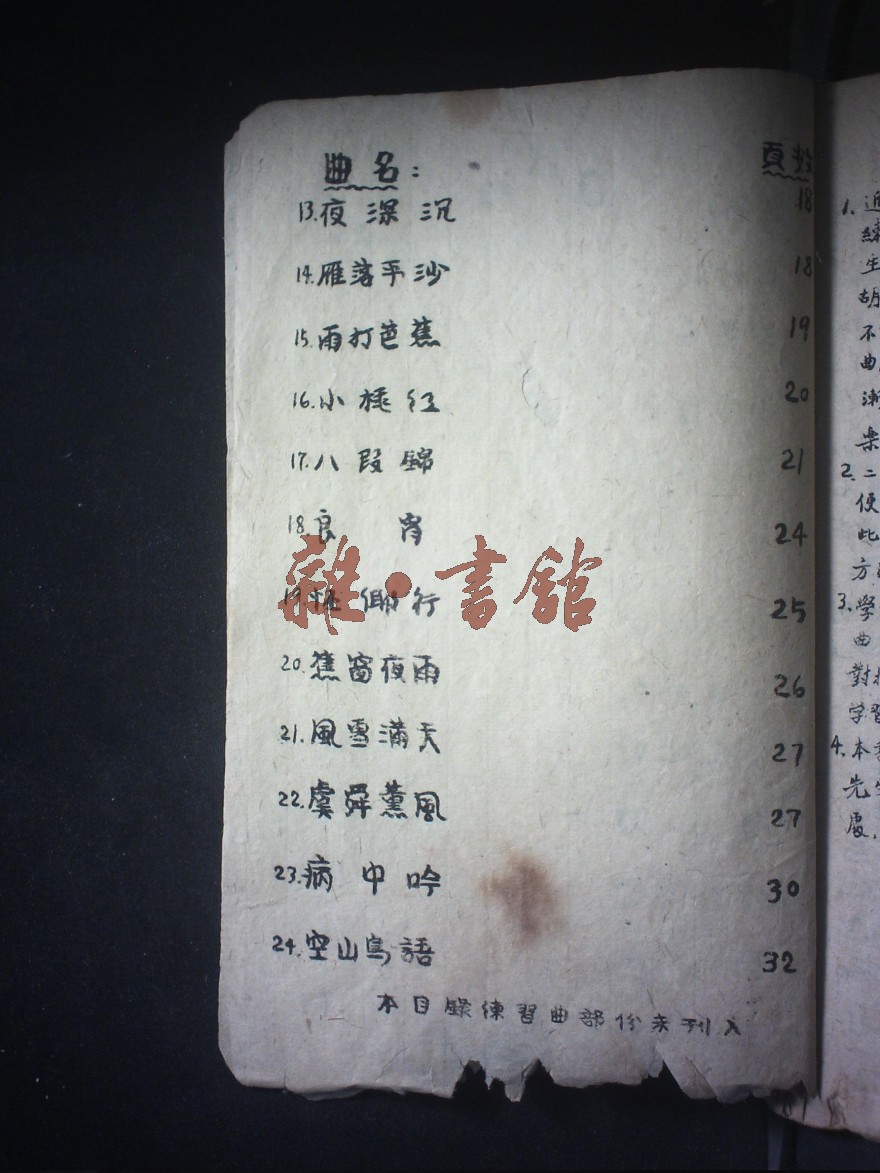 曲名： 頁数
13.夜深沉 18
14.雁落平沙 18
15.雨打芭蕉 19
16.小桃红 20
17.八段錦 21
18.良宵 24
19. 行 25
20.蕉窗夜雨 26
21.風雪滿天 27
22.虞舜薰風 27
23.病中吟 30
24.空山鳥語 32
本目錄練習曲部份未刊入
雜·書館
1.
練
生
胡
不
曲
漸
2.二
便
此
方
3.學
曲
對
学習
4.本
先生
處.